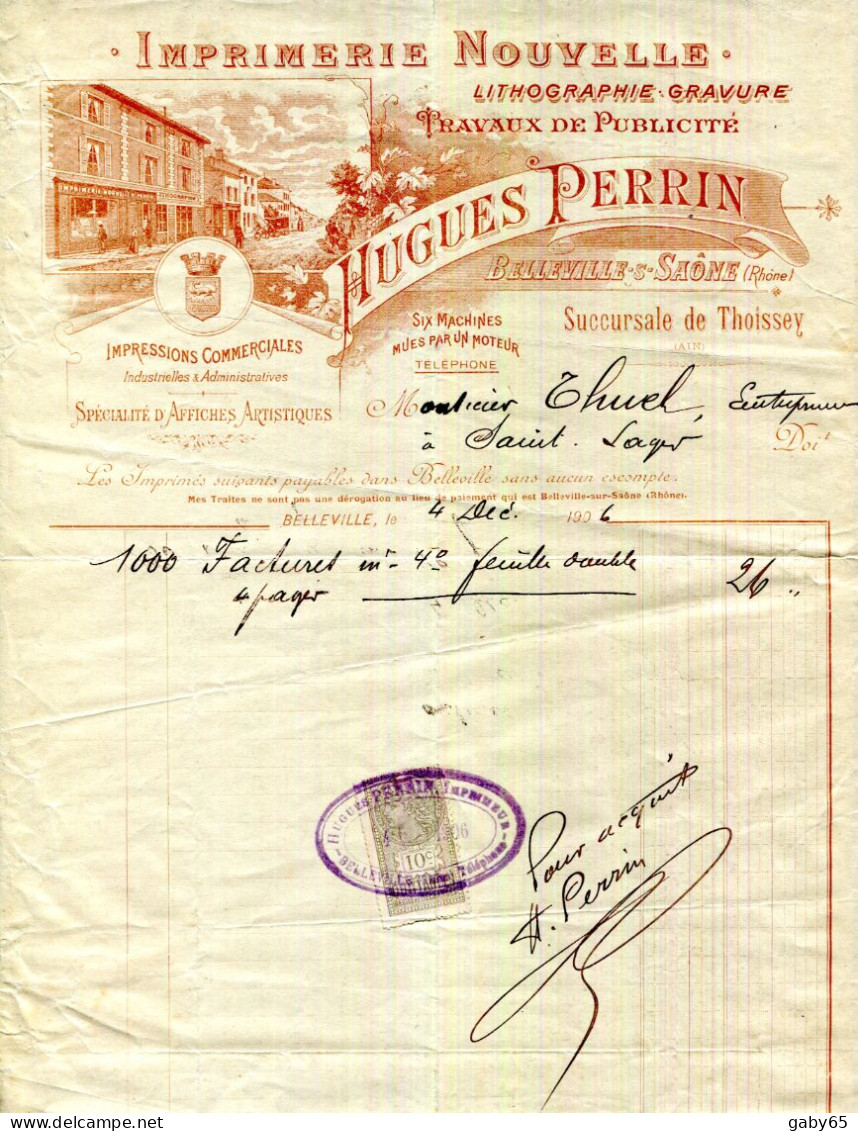 · IMPRIMERIE NOUVELLE ·
LITHOGRAPHIE · GRAVURE
TRAVAUX DE PUBLICITÉ
HUGUES PERRIN
BELLEVILLE-S-SAÔNE (Rhône)
IMPRIMERIE NOUVELLE
LITHOGRAPHIE
SIX MACHINES
MUES PAR UN MOTEUR
TÉLÉPHONE
Succursale de Thoissey
(AIN)
IMPRESSIONS COMMERCIALES
Industrielles & Administratives
SPÉCIALITÉ D'AFFICHES ARTISTIQUES
Monsieur Thuel, Entrepreneur
à Saint-Lager Doit
Les Imprimés suivants payables dans Belleville sans aucun escompte.
Mes Traites ne sont pas une dérogation au lieu de paiement qui est Belleville-sur-Saône (Rhône).
BELLEVILLE, le 4 Déc. 1906
1000 Factures in-4º feuille double 26 "
4 pages
HUGUES PERRIN, IMPRIMEUR
1906
10c
BELLEVILLE Téléphone
Pour acquit
H. Perrin
delcampe.net
gaby65